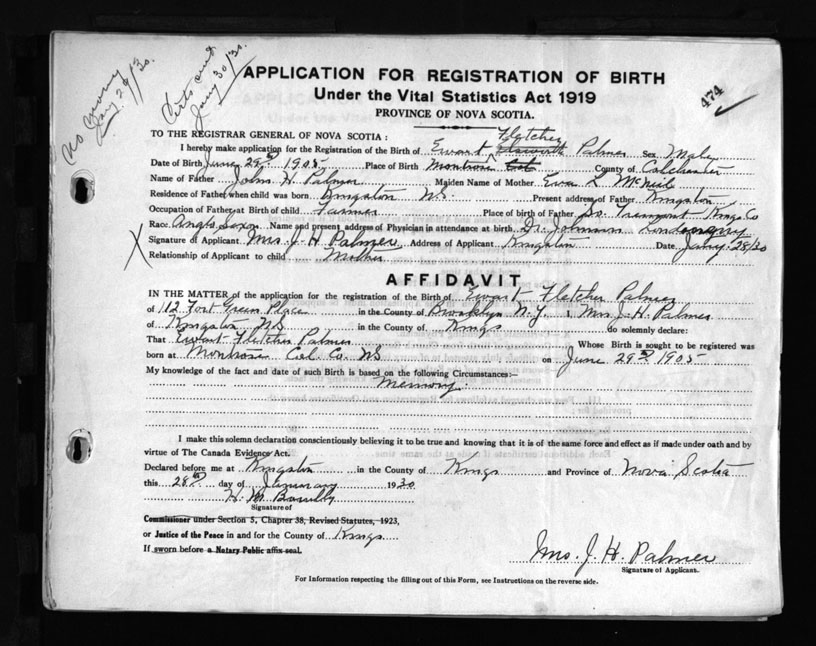 No Querry
Jany 29/30.
Certs and
Jany 30/30.
474
APPLICATION FOR REGISTRATION OF BIRTH
Under the Vital Statistics Act 1919
PROVINCE OF NOVA SCOTIA.
TO THE REGISTRAR GENERAL OF NOVA SCOTIA:
Fletcher
I hereby make application for the Registration of the Birth of Ewart Palmer Sex Male
Date of Birth June 29th 1905 Place of Birth Montrose Col County of Colchester
Name of Father John H. Palmer Maiden Name of Mother Eva L McNeil
Residence of Father when child was born Kingston NS. Present address of Father Kingston
Occupation of Father at Birth of child Farmer Place of birth of Father So. Tremont Kings Co
Race Anglo Saxon Name and present address of Physician in attendance at birth Dr. Johnson Londonderry
Signature of Applicant Mrs. J H Palmer Address of Applicant Kingston Date Jany. 28/30
Relationship of Applicant to child Mother
AFFIDAVIT
IN THE MATTER of the application for the registration of the Birth of Ewart Fletcher Palmer
of 112 Fort Green Place in the County of Brooklyn N.Y. I, Mrs J. H. Palmer
of Kingston NS in the County of Kings do solemnly declare:
That Ewart Fletcher Palmer Whose Birth is sought to be registered was
born at Montrose Col Co. NS on June 29th 1905
My knowledge of the fact and date of such Birth is based on the following Circumstances:—
Memory.
I make this solemn declaration conscientiously believing it to be true and knowing that it is of the same force and effect as if made under oath and by
virtue of The Canada Evidence Act.
Declared before me at Kingston in the County of Kings and Province of Nova Scotia
this 28th day of January 1930
H. M.
Signature of
Commissioner under Section 5, Chapter 38, Revised Statutes, 1923,
or Justice of the Peace in and for the County of Kings
If sworn before a Notary Public affix seal.
Mrs. J. H. Palmer
Signature of Applicant.
For Information respecting the filling out of this Form, see Instructions on the reverse side.